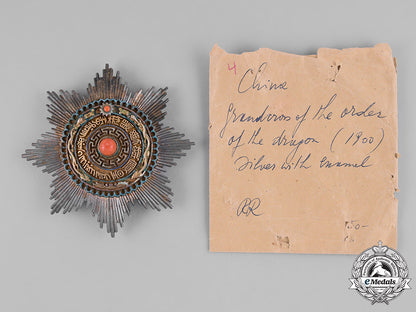 4
China
grandcross of the order
of the dragon (1900)
silver with enamel
RR
50-
eMedals